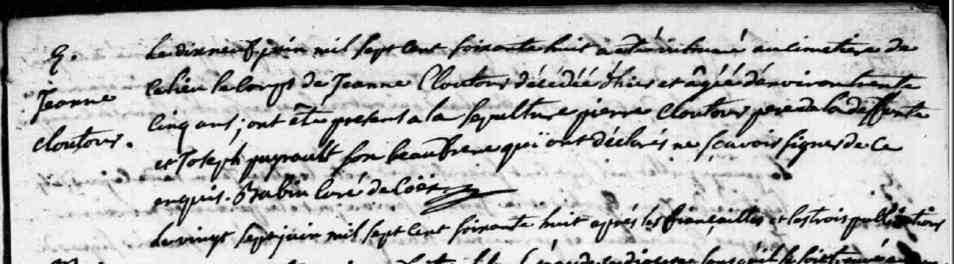 S.
Jeanne
Cloutour.
Le dixneuf juin mil sept cent soixante huit a eté inhumé au cimetiere de
ce lieu le corps de Jeanne Cloutour décédée d'hier et agée d'environ trente
cinq ans; ont eté present a la sepulture pierre Cloutour pere de la deffunte
et Joseph puyrault son beaufrere qui ont déclarés ne sçavoir signer de ce
enquis. Babin curé de
Le vingt sept juin mil sept cent soixante huit aprés les fiançailles et les trois publications